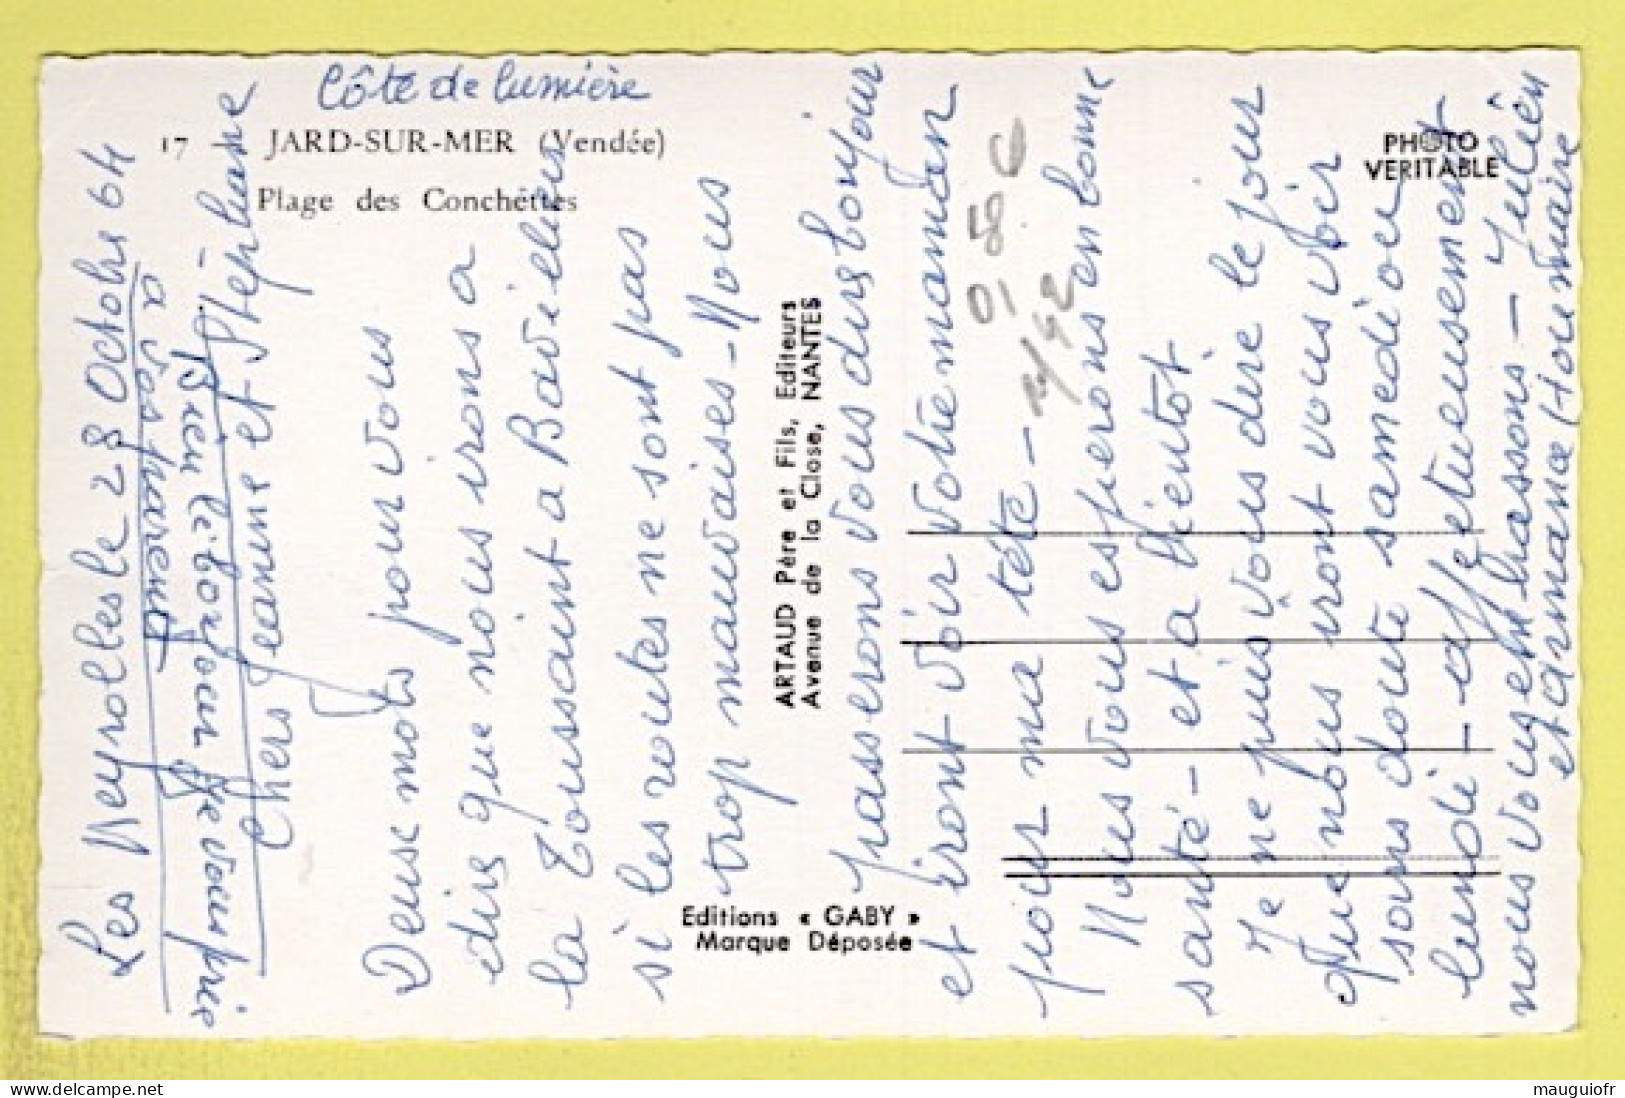 Côte de lumière
17 JARD-SUR-MER (Vendée)
Plage des Conchettes
PHOTO
VERITABLE
Les Neyrolles le 28 Octobre 64
Bien le bonjour Je vous prie
a vos parents
Chers Jeanne et Stéphane
Deuse mots pour vous
dirs que nous irons a
la Toussaint a Bavileurs
si les routes ne sont pas
trop mauvaises - Nous
passerons vous dirs bonjour
et iront voir votre maman
pour ma tété -
Nous vous esperons en bonne
santé - et a bientot
Je ne puis vous dire le jour
que nous iront vous voir
sans doute samedi ou
lundi - affectueusement
nous vous embrassons - Julien
et armance (Houmaire
ARTAUD Père et Fils, Editeurs
Avenue de la Close, NANTES
Editions « GABY »
Marque Déposée
0,80 €
mauguiofr
delcampe.net